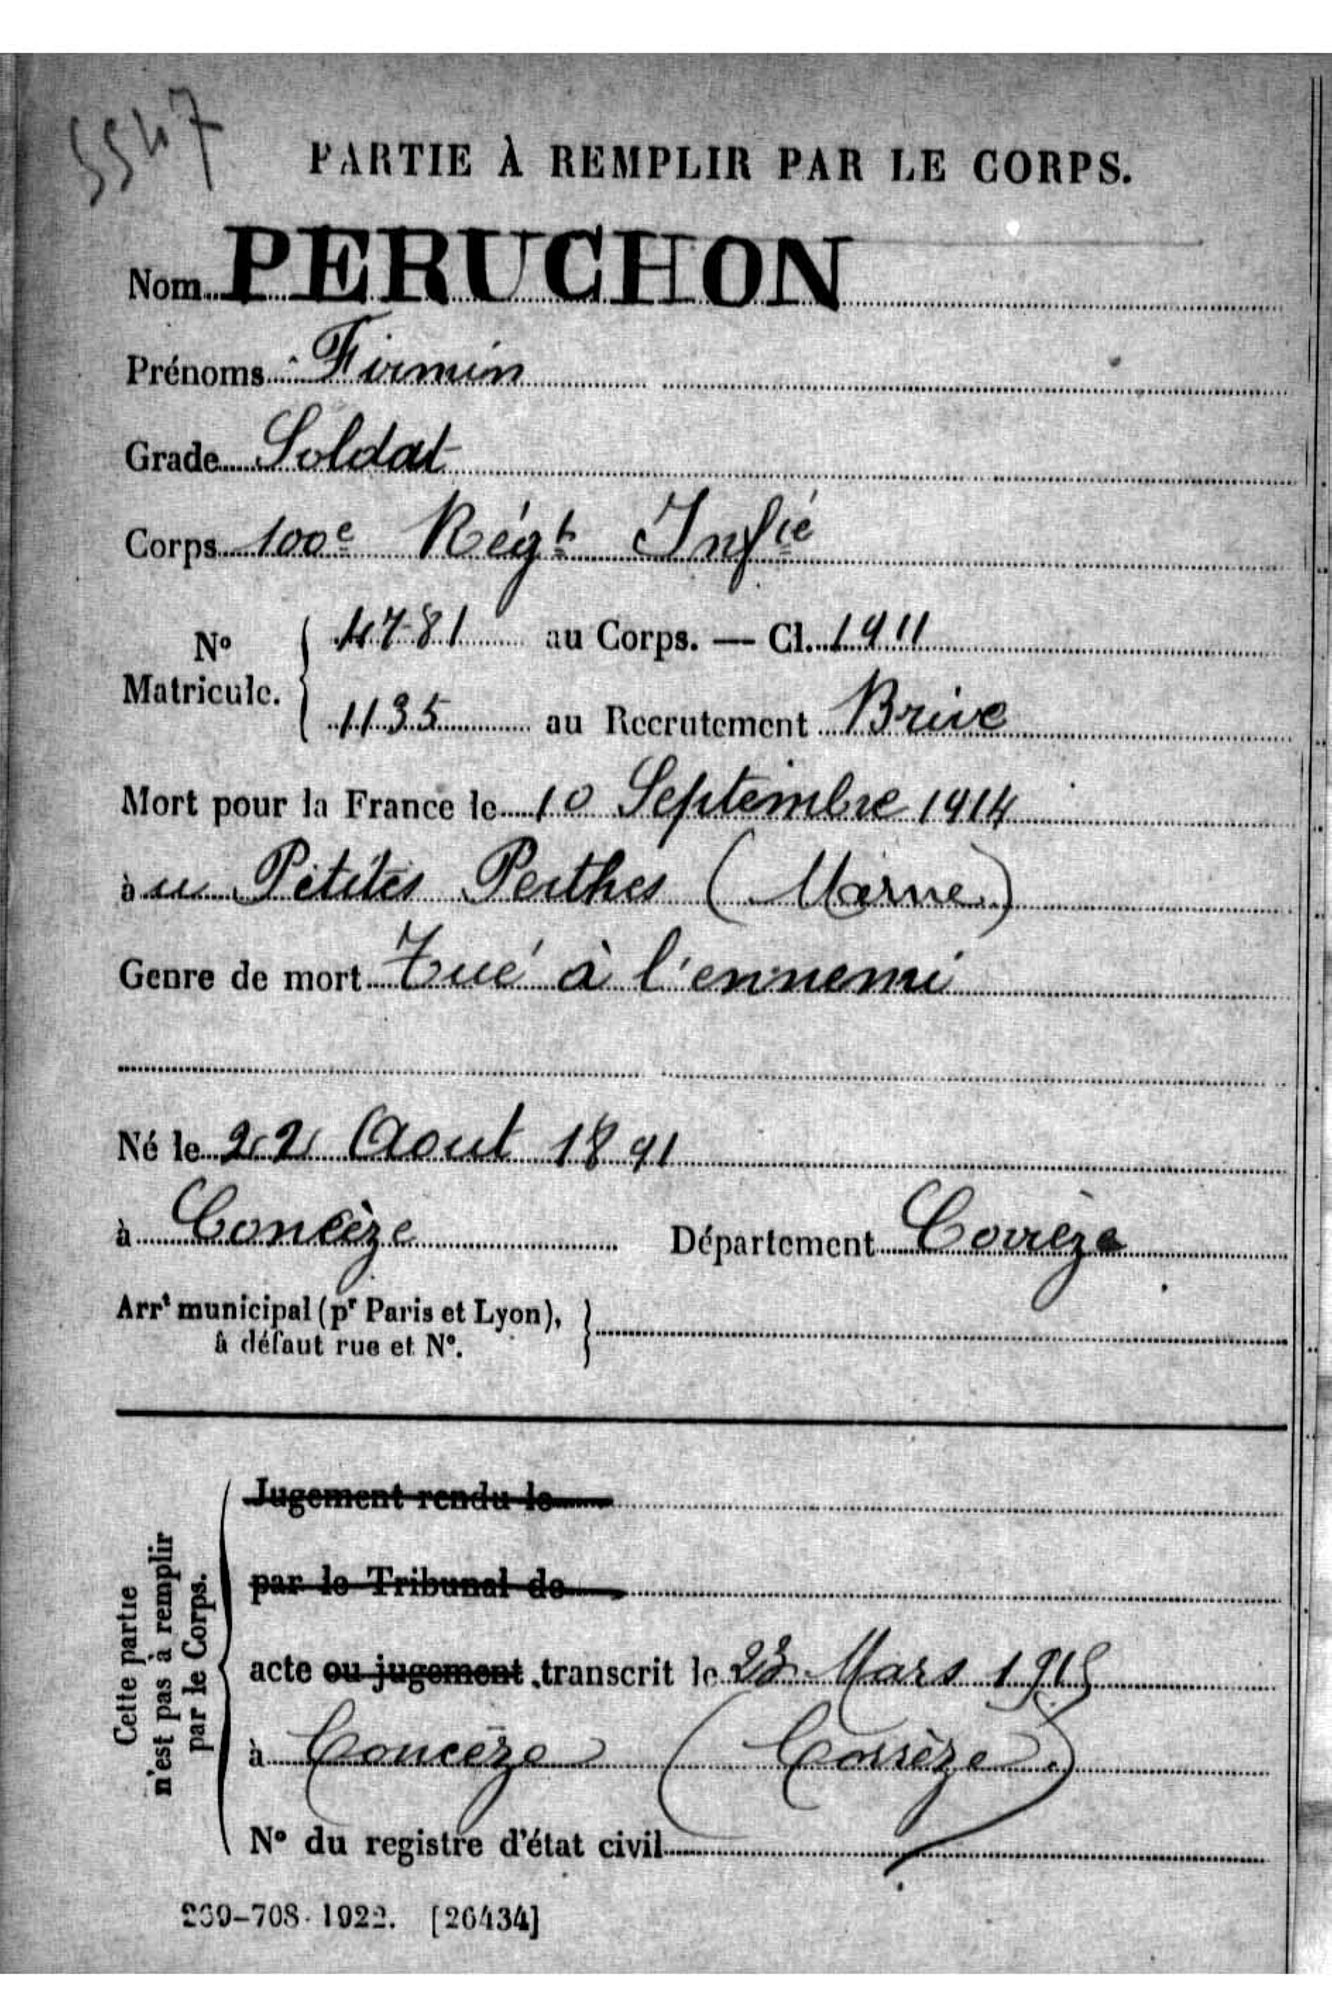 5547
PARTIE À REMPLIR PAR LE CORPS.
Nom PERUCHON
Prénoms Firmin
Grade Soldat
Corps 100e Régt Infie
No Matricule. { 4781 au Corps. — Cl. 1911
1135 au Recrutement Brive
Mort pour la France le 10 Septembre 1914
à u Petites Perthes (Marne)
Genre de mort Tué à l'ennemi
Né le 22 Aout 1891
à Concèze Département Corrèze
Arrt municipal (pr Paris et Lyon), }
à défaut rue et N°.
Cette partie
n'est pas à remplir
par le Corps.
Jugement rendu le
par le Tribunal de
acte ou jugement transcrit le 23 Mars 1915
à Concèze (Corrèze)
N° du registre d'état civil
269-708. 1922. [26434]